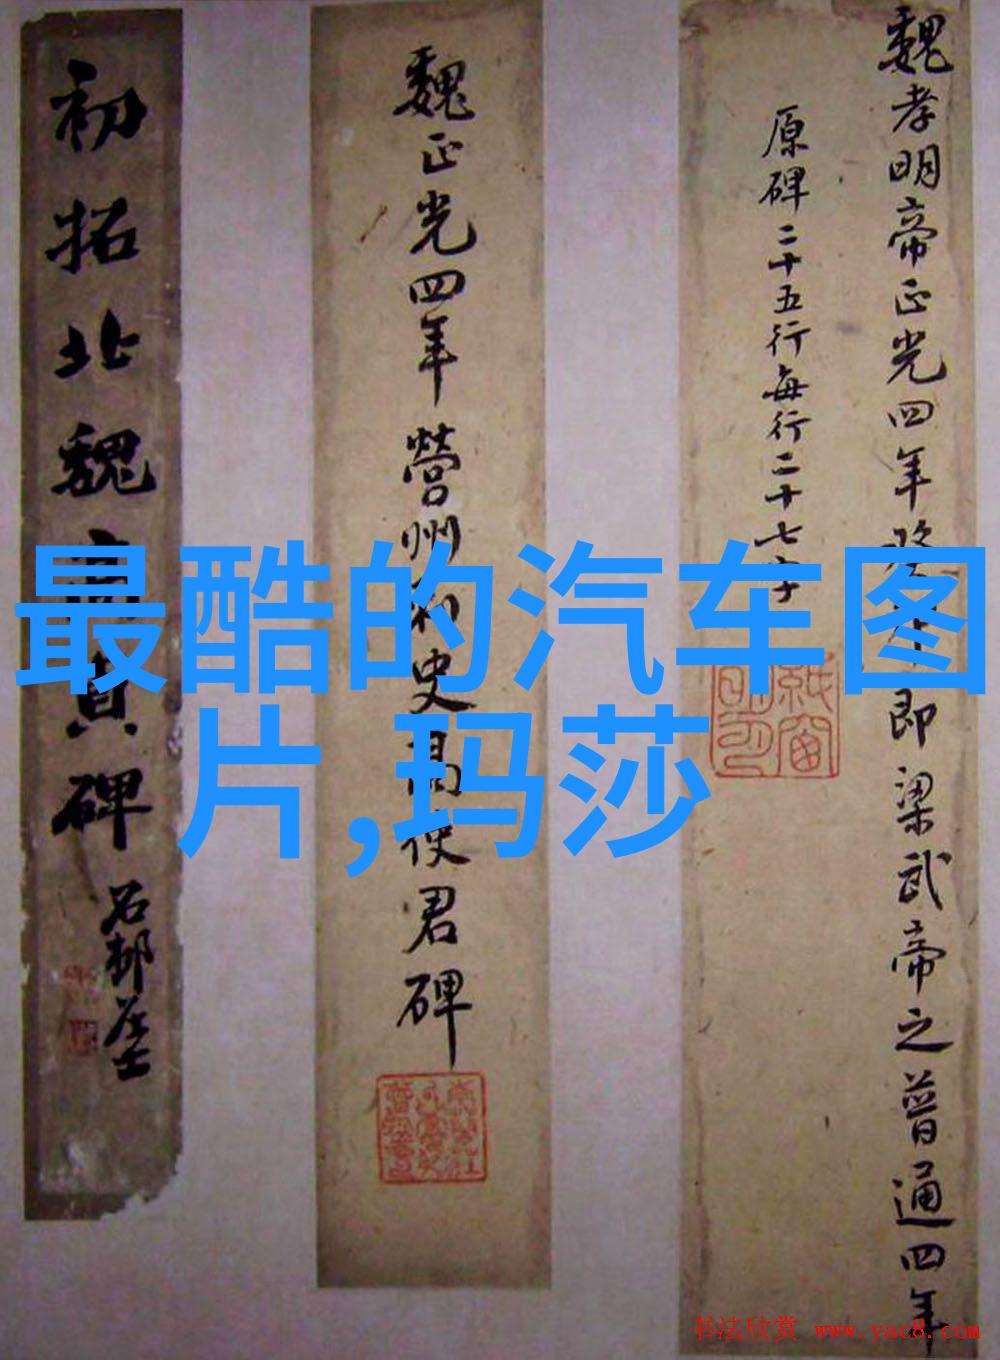 魏孝明帝正光四年癸卯即梁武帝之普通四年
原碑二十五行每行二十七字
魏正光四年營州刺史高使君碑
初拓北魏高貞碑
石邨居士
最酷的汽车图
片,玛莎
书法欣赏 www.yac8.com